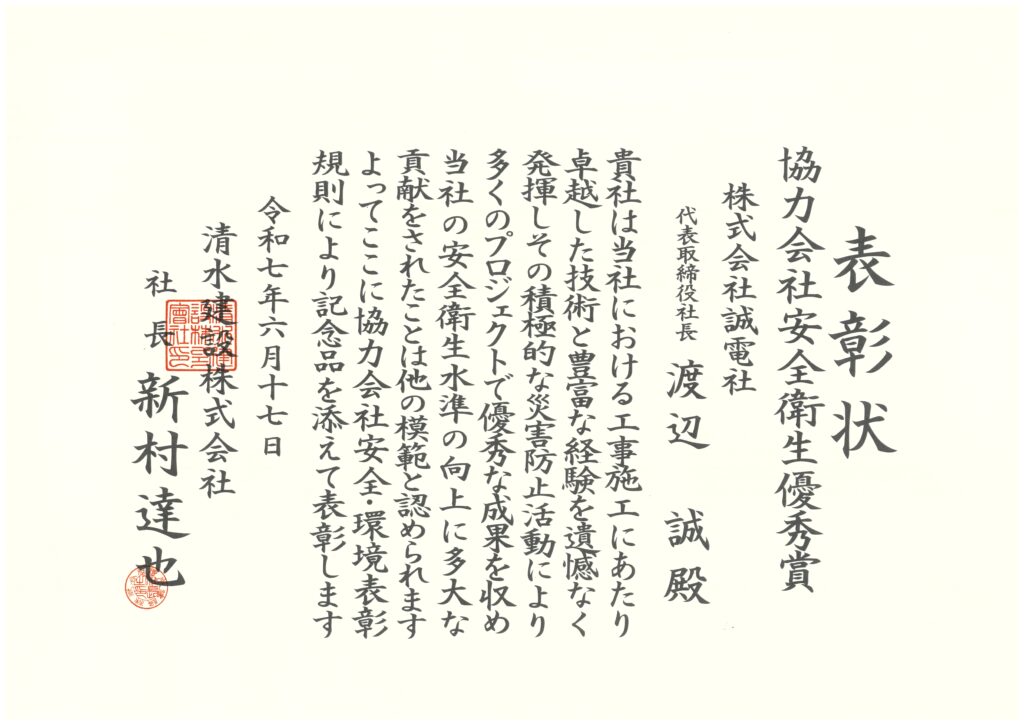 表彰状
協力会社安全衛生優秀賞
株式会社誠電社
代表取締役社長 渡辺 誠殿
貴社は当社における工事施工にあたり
卓越した技術と豊富な経験を遺憾なく
発揮しその積極的な災害防止活動により
多くのプロジェクトで優秀な成果を収め
当社の安全衛生水準の向上に多大な
貢献をされたことは他の模範と認められます
よってここに協力会社安全・環境表彰
規則により記念品を添えて表彰します
令和七年六月十七日
清水建設株式会社
社長 新村達也